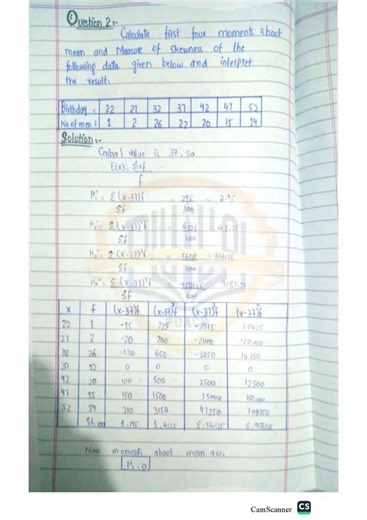 Question 2:-
Calculate first four moments about
mean and Measure of skewness of the
following data given below and interpret
the result.
Birthday x 22 27 32 37 42 47 52
No of men f 1 2 26 22 20 15 14
Solution:-
Central value is 37, so
E(x) = Σxf
f
μ₁' = Σ(x-37)f = 295 = 2.95
Σf 100
μ₂' = Σ(x-37)²f = 6225 = 62.25
Σf 100
μ₃' = Σ(x-37)³f
Σf 100
μ₄' = Σ(x-37)⁴f
Σf 100
x f (x-37)f (x-37)²f (x-37)³f (x-37)⁴f
22 1 -15 225 -3375 50625
27 2 -20 200 -2000 20000
32 26 -130 650 -3250 16250
37 22 0 0 0 0
42 20 100 500 2500 12500
47 15 150 1500 15000
52 14 210 3150 47250
Σf=100
Now moments about mean are;
μ₁ = 0
CamScanner
CS